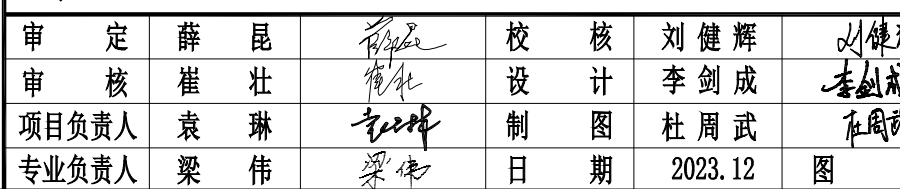 审 定 薛 昆 薛昆 校 核 刘 健 辉 刘健
审 核 崔 壮 崔壮 设 计 李 剑 成 李剑成
项目负责人 袁 琳 制 图 杜 周 武 杜周武
专业负责人 梁 伟 梁伟 日 期 2023.12 图